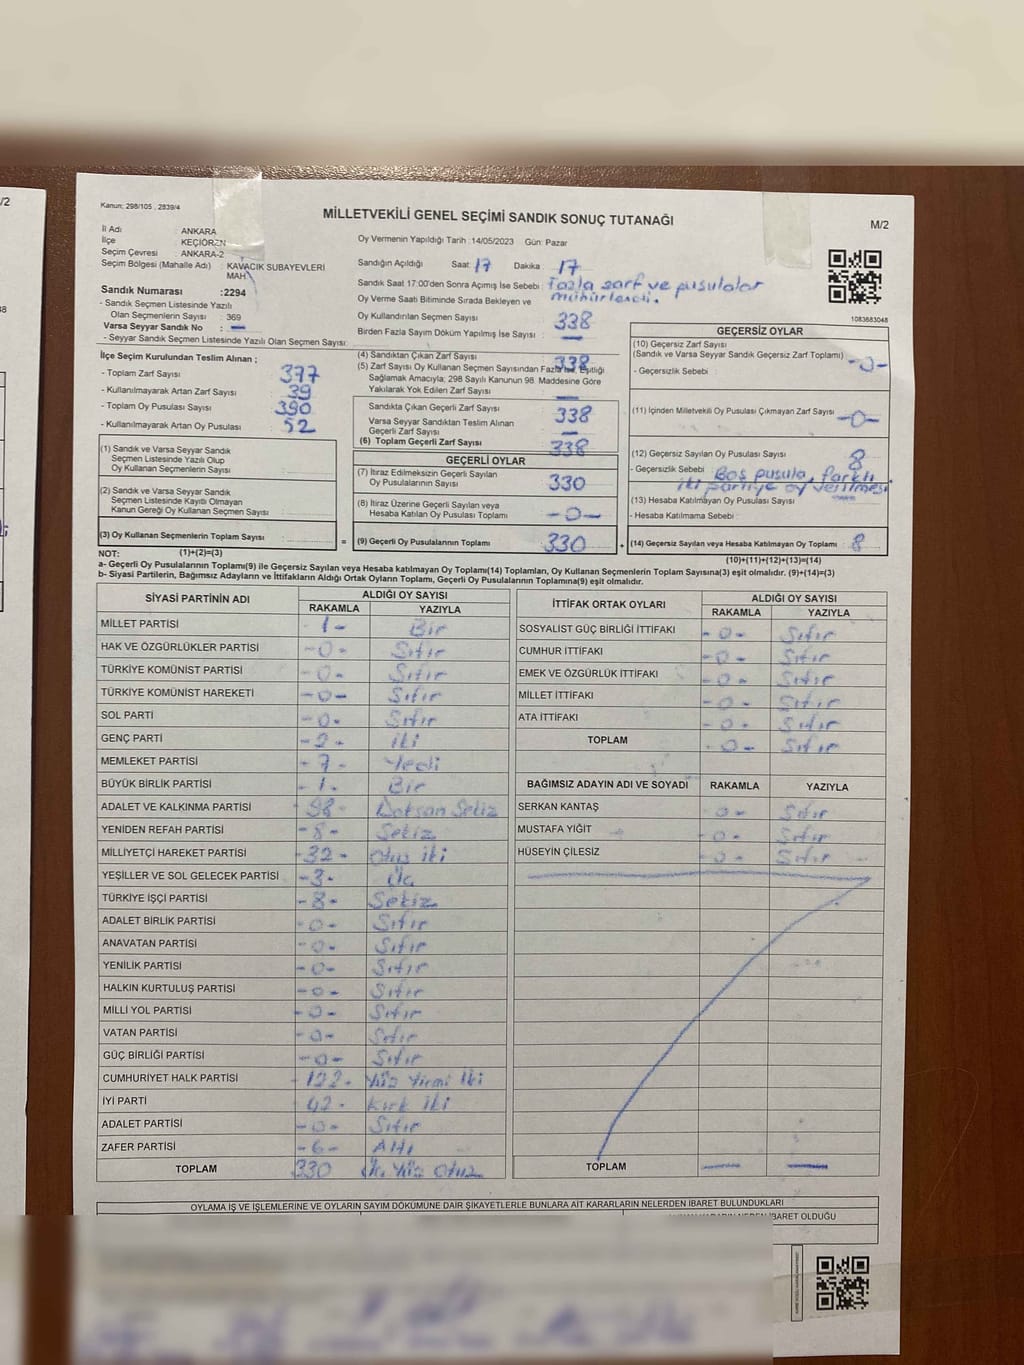 /2
Kanun; 298/105 , 2839/4
MİLLETVEKİLİ GENEL SEÇİMİ SANDIK SONUÇ TUTANAĞI
M/2
İl Adı : ANKARA
İlçe : KEÇİÖREN
Seçim Çevresi : ANKARA-2
Seçim Bölgesi (Mahalle Adı) : KAVACIK SUBAYEVLERİ
MAH.
Sandık Numarası :2294
- Sandık Seçmen Listesinde Yazılı
Olan Seçmenlerin Sayısı : 369
Varsa Seyyar Sandık No : —
- Seyyar Sandık Seçmen Listesinde Yazılı Olan Seçmen Sayısı:
Oy Vermenin Yapıldığı Tarih :14/05/2023 Gün: Pazar
Sandığın Açıldığı Saat: 17 Dakika : 17
Sandık Saat 17:00'den Sonra Açımış İse Sebebi : Fazla zarf ve pusulalar
mühürlendi.
Oy Verme Saati Bitiminde Sırada Bekleyen ve
Oy Kullandırılan Seçmen Sayısı : 338
Birden Fazla Sayım Döküm Yapılmış İse Sayısı : —
1083683048
İlçe Seçim Kurulundan Teslim Alınan ;
- Toplam Zarf Sayısı : 377
- Kullanılmayarak Artan Zarf Sayısı : 39
- Toplam Oy Pusulası Sayısı : 390
- Kullanılmayarak Artan Oy Pusulası : 52
(1) Sandık ve Varsa Seyyar Sandık
Seçmen Listesinde Yazılı Olup
Oy Kullanan Seçmenlerin Sayısı :
(2) Sandık ve Varsa Seyyar Sandık
Seçmen Listesinde Kayıtlı Olmayan
Kanun Gereği Oy Kullanan Seçmen Sayısı :
(3) Oy Kullanan Seçmenlerin Toplam Sayısı :
(1)+(2)=(3)
(4) Sandıktan Çıkan Zarf Sayısı : 338
(5) Zarf Sayısı Oy Kullanan Seçmen Sayısından Fazla ise, Eşitliği
Sağlamak Amacıyla; 298 Sayılı Kanunun 98. Maddesine Göre
Yakılarak Yok Edilen Zarf Sayısı : —
Sandıkta Çıkan Geçerli Zarf Sayısı : 338
Varsa Seyyar Sandıktan Teslim Alınan
Geçerli Zarf Sayısı : —
(6) Toplam Geçerli Zarf Sayısı : 338
GEÇERLİ OYLAR
(7) İtiraz Edilmeksizin Geçerli Sayılan
Oy Pusulalarının Sayısı : 330
(8) İtiraz Üzerine Geçerli Sayılan veya
Hesaba Katılan Oy Pusulası Toplamı : -0-
= (9) Geçerli Oy Pusulalarının Toplamı : 330 +
GEÇERSİZ OYLAR
(10) Geçersiz Zarf Sayısı
(Sandık ve Varsa Seyyar Sandık Geçersiz Zarf Toplamı) : -0-
- Geçersizlik Sebebi :
(11) İçinden Milletvekili Oy Pusulası Çıkmayan Zarf Sayısı : -0-
(12) Geçersiz Sayılan Oy Pusulası Sayısı : 8
- Geçersizlik Sebebi : Boş pusula, farklı
iki partiye oy verilmesi
(13) Hesaba Katılmayan Oy Pusulası Sayısı : —
- Hesaba Katılmama Sebebi :
(14) Geçersiz Sayılan veya Hesaba Katılmayan Oy Toplamı : 8
(10)+(11)+(12)+(13)=(14)
NOT:
a- Geçerli Oy Pusulalarının Toplamı(9) ile Geçersiz Sayılan veya Hesaba katılmayan Oy Toplamı(14) Toplamları, Oy Kullanan Seçmenlerin Toplam Sayısına(3) eşit olmalıdır. (9)+(14)=(3)
b- Siyasi Partilerin, Bağımsız Adayların ve İttifakların Aldığı Ortak Oyların Toplamı, Geçerli Oy Pusulalarının Toplamına(9) eşit olmalıdır.
SİYASİ PARTİNİN ADI ALDIĞI OY SAYISI
RAKAMLA YAZIYLA
MİLLET PARTİSİ - 1 - Bir
HAK VE ÖZGÜRLÜKLER PARTİSİ - 0 - Sıfır
TÜRKİYE KOMÜNİST PARTİSİ - 0 - Sıfır
TÜRKİYE KOMÜNİST HAREKETİ - 0 - Sıfır
SOL PARTİ - 0 - Sıfır
GENÇ PARTİ - 2 - İki
MEMLEKET PARTİSİ - 7 - Yedi
BÜYÜK BİRLİK PARTİSİ - 1 - Bir
ADALET VE KALKINMA PARTİSİ - 98 - Doksan Sekiz
YENİDEN REFAH PARTİSİ - 8 - Sekiz
MİLLİYETÇİ HAREKET PARTİSİ - 32 - Otuz iki
YEŞİLLER VE SOL GELECEK PARTİSİ - 3 - Üç
TÜRKİYE İŞÇİ PARTİSİ - 8 - Sekiz
ADALET BİRLİK PARTİSİ - 0 - Sıfır
ANAVATAN PARTİSİ - 0 - Sıfır
YENİLİK PARTİSİ - 0 - Sıfır
HALKIN KURTULUŞ PARTİSİ - 0 - Sıfır
MİLLİ YOL PARTİSİ - 0 - Sıfır
VATAN PARTİSİ - 0 - Sıfır
GÜÇ BİRLİĞİ PARTİSİ - 0 - Sıfır
CUMHURİYET HALK PARTİSİ - 122 - Yüz Yirmi İki
İYİ PARTİ - 42 - Kırk İki
ADALET PARTİSİ - 0 - Sıfır
ZAFER PARTİSİ - 6 - Altı
TOPLAM 330 Üç Yüz Otuz
İTTİFAK ORTAK OYLARI ALDIĞI OY SAYISI
RAKAMLA YAZIYLA
SOSYALİST GÜÇ BİRLİĞİ İTTİFAKI - 0 - Sıfır
CUMHUR İTTİFAKI - 0 - Sıfır
EMEK VE ÖZGÜRLÜK İTTİFAKI - 0 - Sıfır
MİLLET İTTİFAKI - 0 - Sıfır
ATA İTTİFAKI - 0 - Sıfır
TOPLAM - 0 - Sıfır
BAĞIMSIZ ADAYIN ADI VE SOYADI RAKAMLA YAZIYLA
SERKAN KANTAŞ - 0 - Sıfır
MUSTAFA YİĞİT - 0 - Sıfır
HÜSEYİN ÇİLESİZ - 0 - Sıfır
TOPLAM — —
OYLAMA İŞ VE İŞLEMLERİNE VE OYLARIN SAYIM DÖKÜMÜNE DAİR ŞİKAYETLERLE BUNLARA AİT KARARLARIN NELERDEN İBARET BULUNDUKLARI
İBARET OLDUĞU